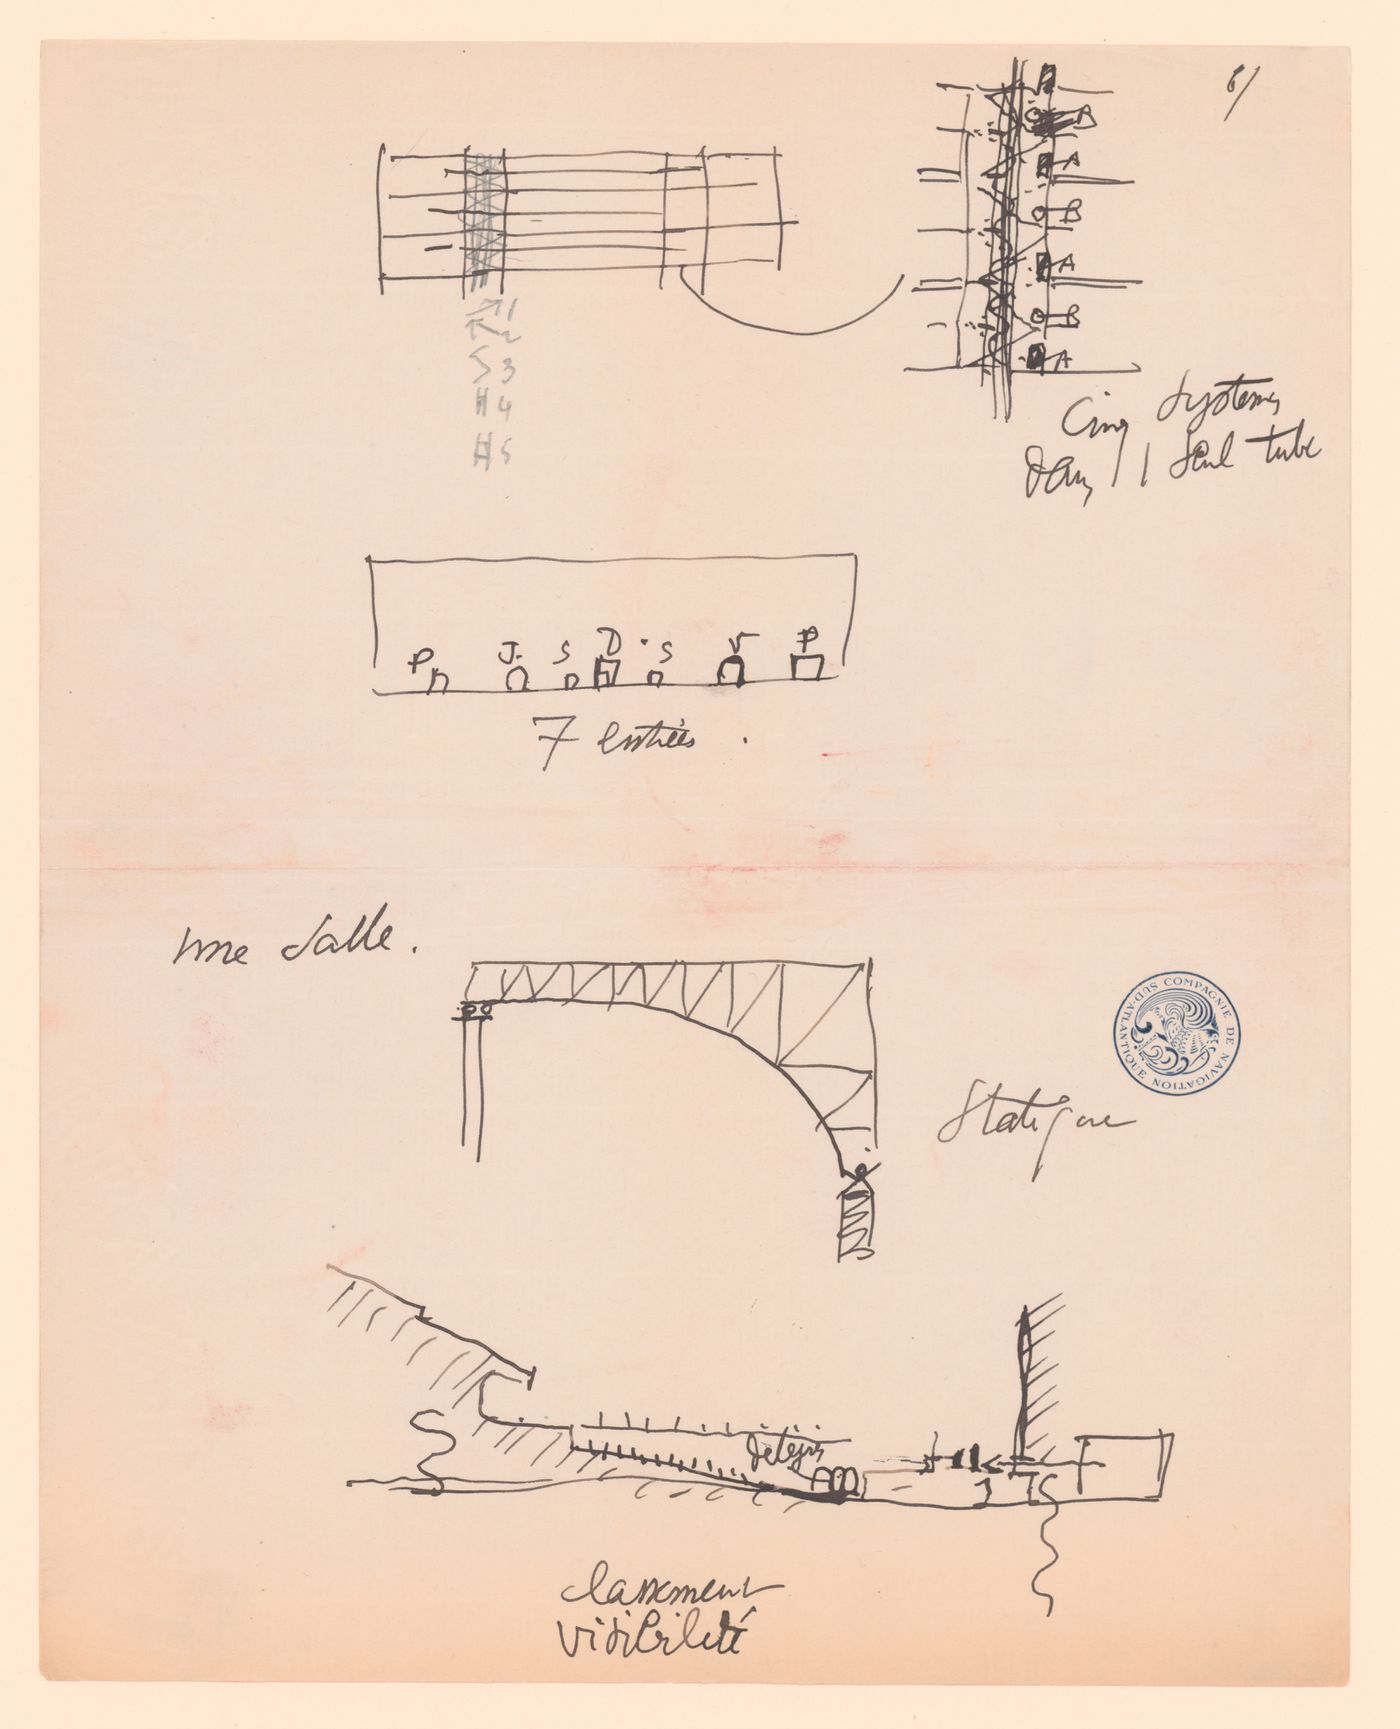 6/
A
B
A
B
A
B
A
1
2
S 3
H 4
H 5
Cinq systemes
dans 1 seul tube
P J. S D S V P
7 entrées.
une salle.
COMPAGNIE DE NAVIGATION SUD-ATLANTIQUE
Statique
classement
visibilité